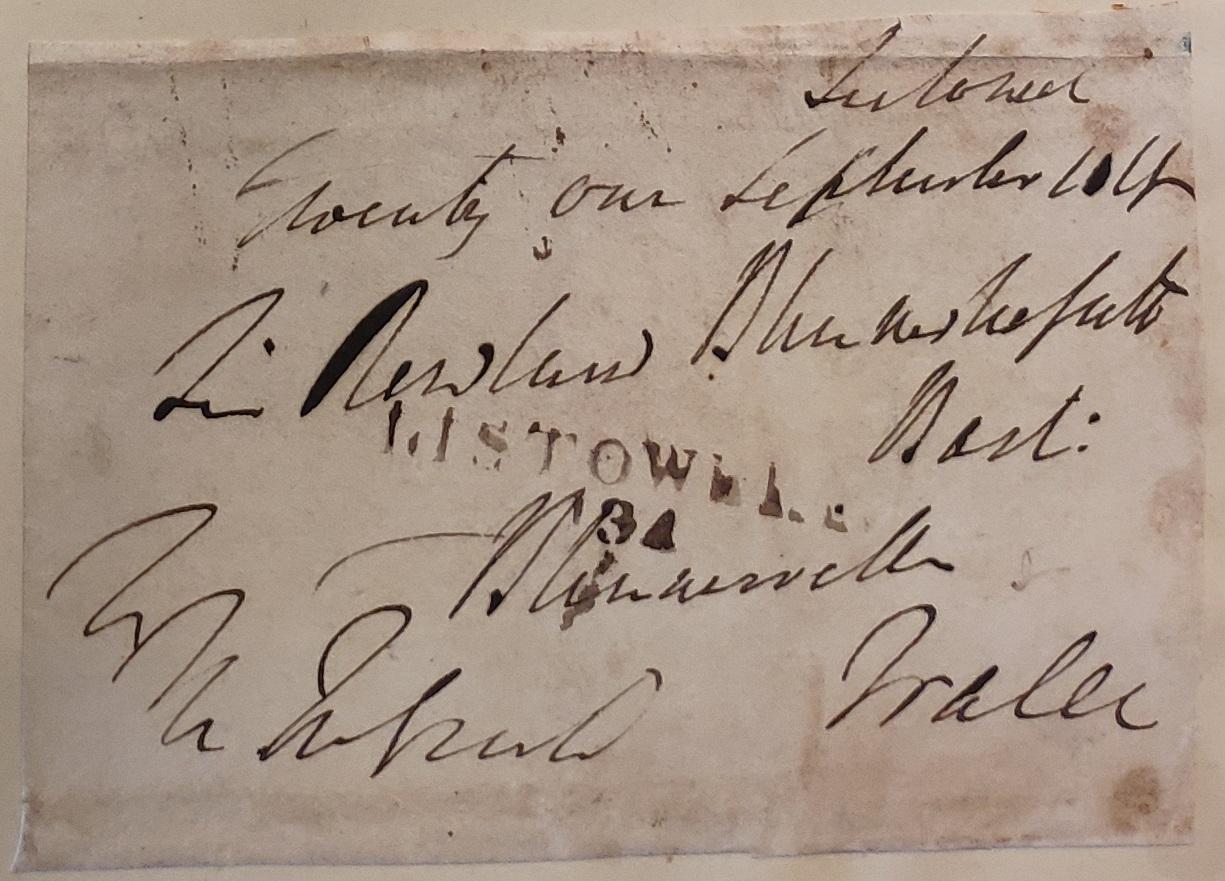 Listowel
Twenty one September 1814
Sir Rowland Blennerhassett
Bart:
LISTOWEL
Blennerville
Tralee